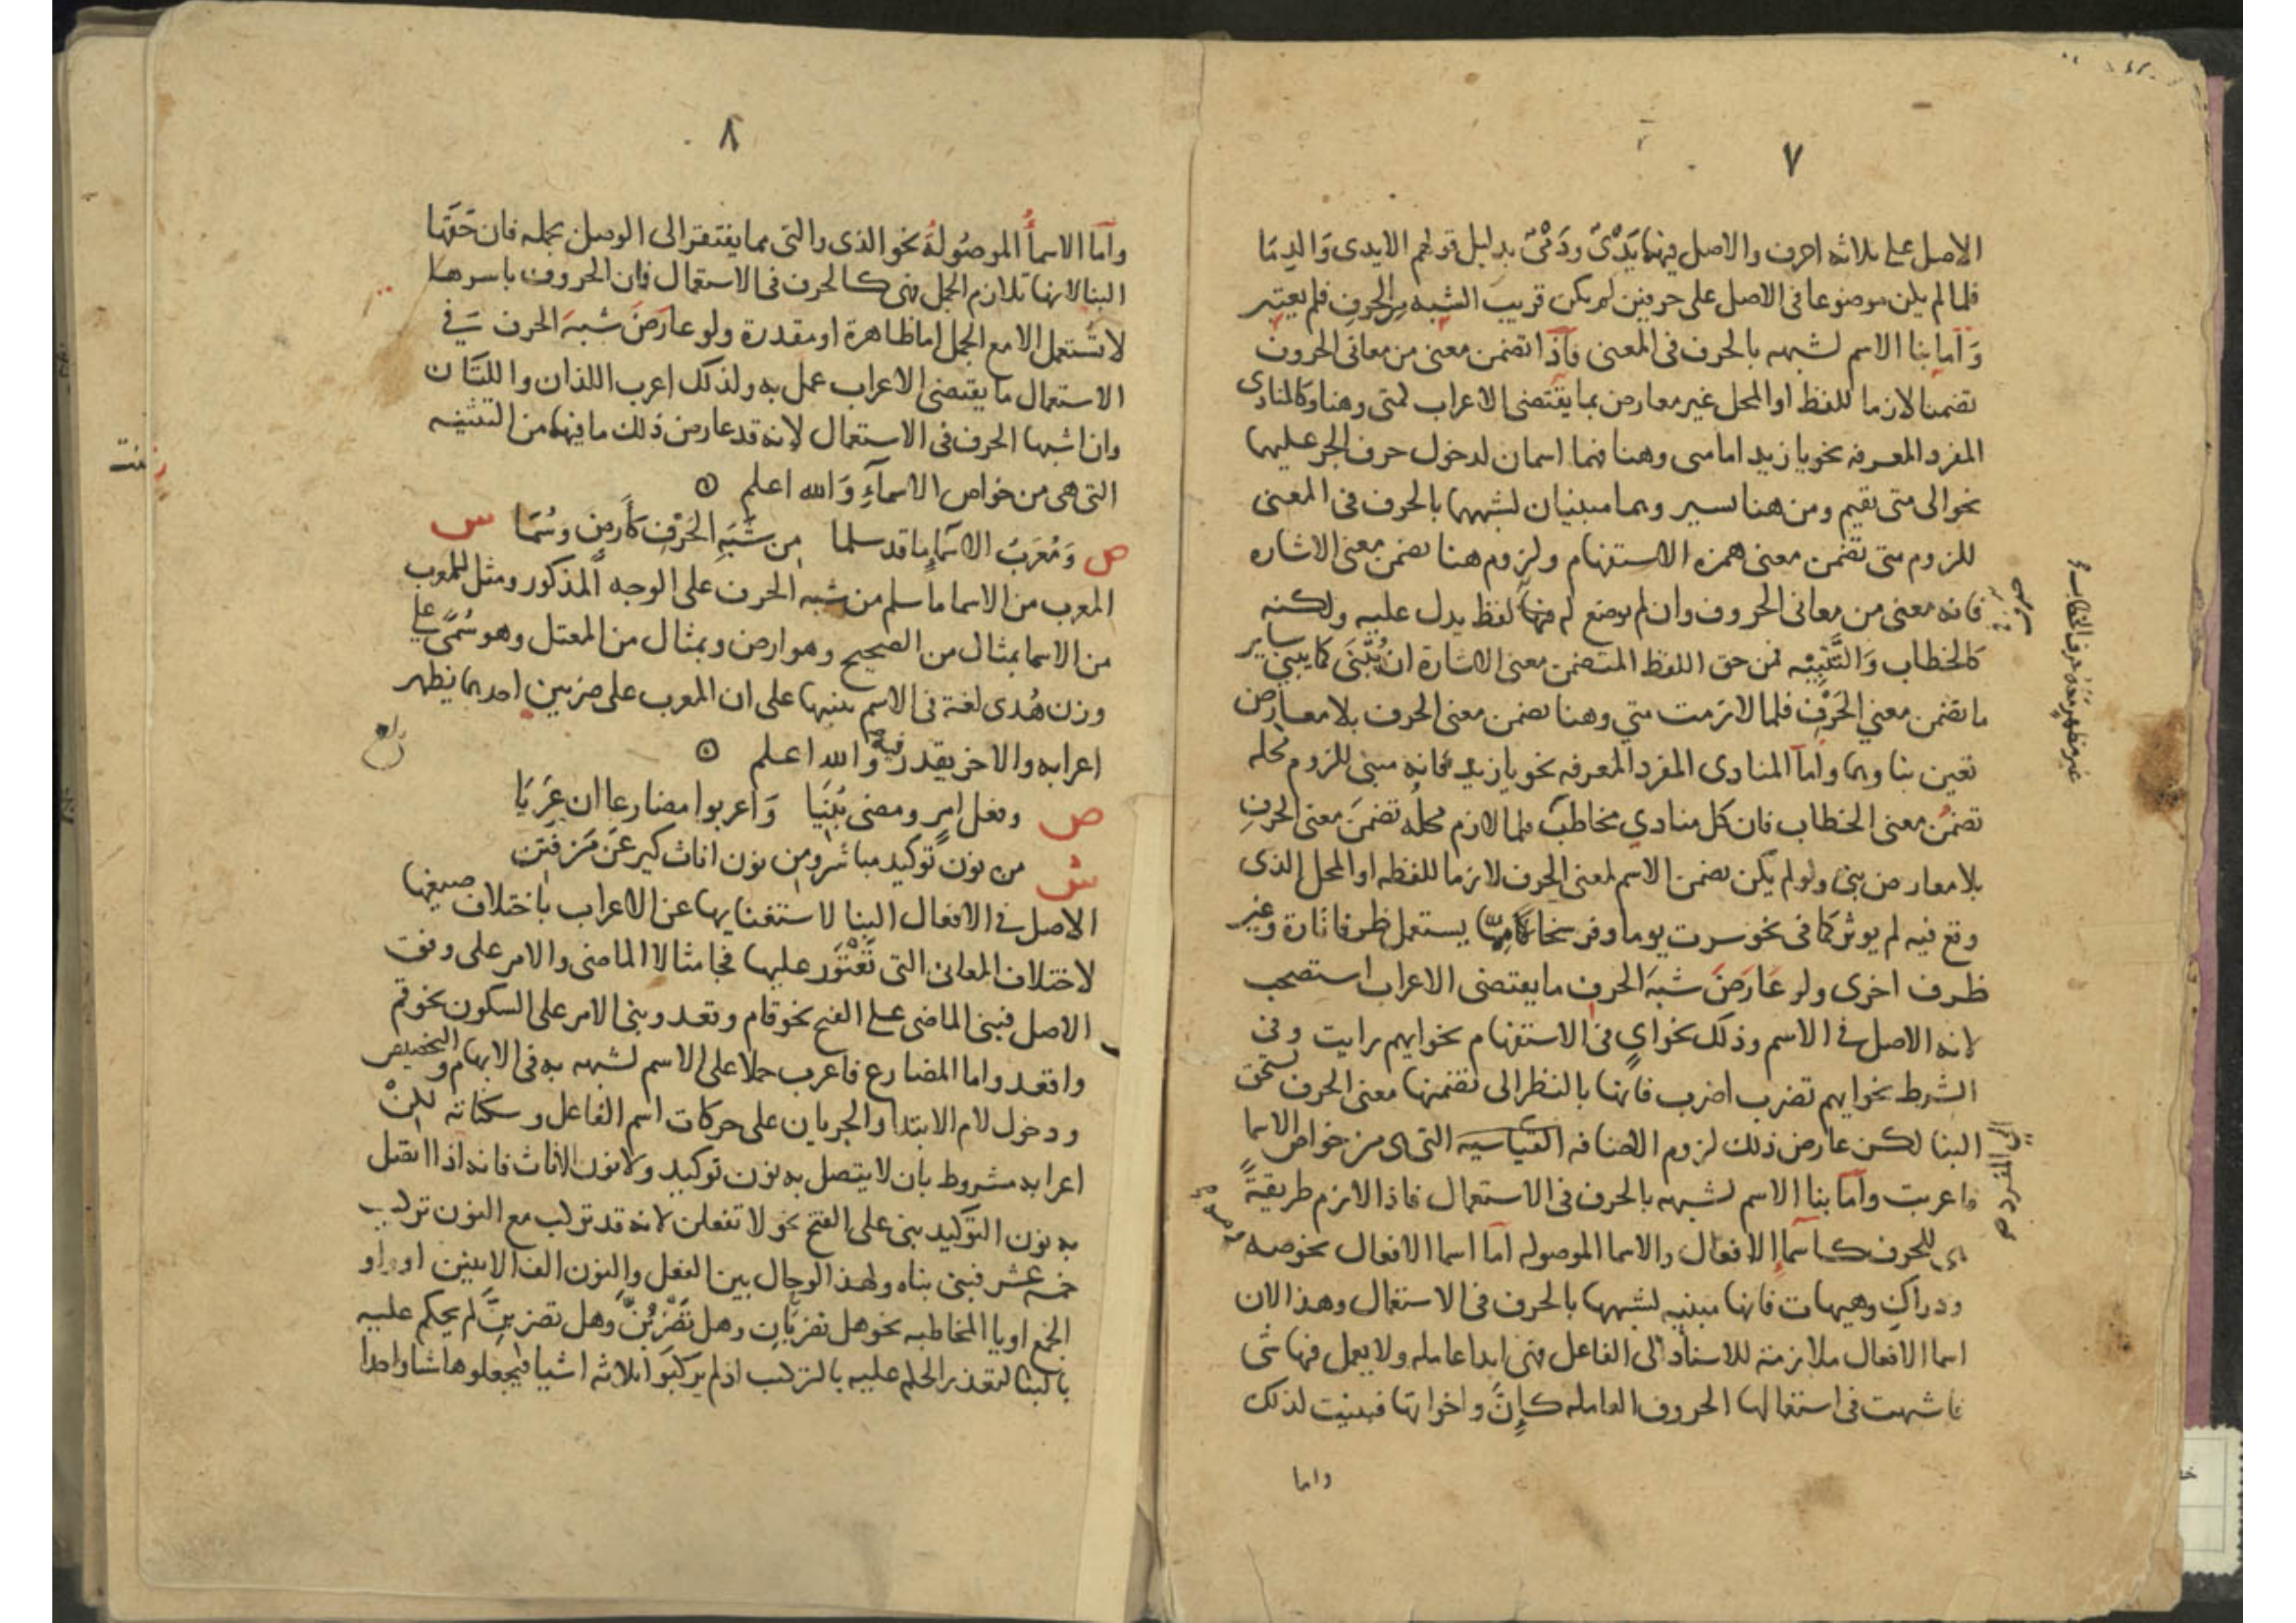 ٧
الاصل على ثلاثه احرف والاصل فيهما يَدْىٌ ودَمْىٌ بدليل قولهم الايدى وَالدِمَا
فلما لم يكن موضوعا فى الاصل على حرفين لم يكن قريب الشبه من الحرفِ فلم يعتبر
وَاما بنا الاسم لشبهه بالحرف فى المعنى فاذا تضمن معنى من معانى الحروف
تضمنا لازما للفظ او المحل غير معارض بما يقتضى الاعراب كمتى وهنا وكالمنادى
المفرد المعرفه نحو يا زيد اما متى وهنا فهما اسمان لدخول حرف الجر عليهما
نحو الى متى تقيم ومن هنا تسير وهما مبنيان لشبههما بالحرف فى المعنى
للزوم متى تضمن معنى همزه الاستفهام ولزوم هنا تضمن معنى الاشاره
فانه معنى من معانى الحروف وان لم يوضع له فيها لفظ يدل عليه ولكنه
كالخطاب وَالتَنْبِيْه فمن حق اللفظ المتضمن معنى الاشارة ان يُبْنَى كما يبنى ساير
ما تضمن معنى الحَرْفِ فلما لازمت متى وهنا تضمن معنى الحرف بلا معارض
تعين بناوهما واما المنادى المفرد المعرفه نحو يا زيد فانه مبنى للزوم محله
تضمُن معنى الخطاب فان كل منادى مخاطب فلما لازم محلُه تضمنَ معنى الحرفِ
بلا معارض بنى ولو لم يكن تضمن الاسم لمعنى الحرف لازما للفظه او المحل الذى
وقع فيه لم يوثر كما فى نحو سرت يوما وفرسخا يستعمل ظرفا تارة وغير
ظرف اخرى ولو عَارَضَ شبهَ الحرفِ ما يقتضى الاعراب استصحب
لانه الاصل فى الاسم وذلك نحو اىٍ فى الاستفهام نحو ايهم رايت وفى
الشرط نحو ايهم تضرب اضرب فانها بالنظر الى تضمنها معنى الحرف تستحق
البنا لكن عارض ذلك لزوم الاضافه القياسيه التى هى من خواص الاسما
فاعربت وامَا بنا الاسم لشبهه بالحرف فى الاستعمال فاذا لازم طريقةً
هى للحرف كاسماءِ الافعال والاسما الموصوله امَا اسما الافعال نحو صه
ودراكِ وهيهات فانها مبنيه لشبهها بالحرف فى الاستعمال وهذا لان
اسما الافعال ملازمة للاسناد الى الفاعل فهى ابدا عامله ولا يعمل فيها شى
فاشبهت فى استعمالها الحروف العامله كإنَّ واخواتها فبنيت لذلك
واما
غير مظهر معه حرف الخطاب
الى المفرد صح
٨
وامَا الاسماُ الموصُولةُ نحو الذى والتى مما يفتقر الى الوصل بجمله فان حَقَّها
البنا لانها تلازم الجمل فهى كالحرف فى الاستعمال فان الحروف باسرها
لا تُستعمل الا مع الجمل اما ظاهرة او مقدرة ولو عارضَ شبهَ الحرف فى
الاستعمال ما يقتضى الاعراب عمل به ولذلك اعرب اللذان واللتَان
وان اشبها الحرف فى الاستعمال لانه قد عارض ذلك ما فيهما من التثنيه
التى هى من خواص الاسمآءِ وَالله اعلم
ص وَمُعْرَبُ الاسماءِ ما قد سلما من شَبَهِ الحَرْفِ كأرضٍ وسُمَا س
المعرب من الاسما ما سلم من شبه الحرف على الوجه المذكور ومثل للمعرب
من الاسما بمثال من الصحيح وهو ارض وبمثال من المعتل وهو سُمًى على
وزن هُدى لغة فى الاسم تنبيها على ان المعرب على ضربين احدهما يظهر
اعرابه والاخر يقدر فيه والله اعلم
ص وفعل امرٍ ومضى بُنِيَا وَاعربوا مضارعا ان عَرِيَا
من نونِ توكيد مباشر ومن نون اناث كيرعْنَ مَن فُتِن
ش
الاصل فى الافعال البنا لاستغنايها عن الاعراب باختلاف صيغها
لاختلاف المعانى التى تَعْتَوِر عليها فجا مثالا الماضى والامر على وفق
الاصل فبنى الماضى على الفتح نحو قام وقعد وبنى الامر على السكون نحو قم
واقعد واما المضارع فاعرب حملا على الاسم لشبهه به فى الابهام والتخصيص
ودخول لام الابتدا والجريان على حركات اسم الفاعل وسكناته لكنْ
اعرابه مشروط بان لا يتصل به نون توكيد ولا نون الاناث فانه اذا اتصل
به نون التوكيد بنى على الفتح نحو لا تفعلن لانه قد تركب مع النون تركيب
خمسه عشر فبنى بناه ولهذا لو حال بين الفعل والنون الف الاثنين او واو
الجمع او يا المخاطبه نحو هل تضربَانِ وهل تَضْرِبُنَّ وهل تضربِنَّ لم يحكم عليه
بالبنا لتعذر الحكم عليه بالتركيب اذ لم يركبوا ثلاثه اشيا فيجعلوها شيا واحدا